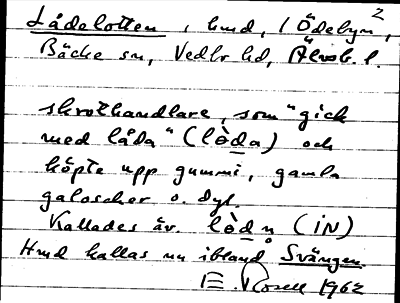 2
Lådelotten, hmd, i Ödebyn,
Bäcke sn, Vedbo hd, Älvsb. l.
skrothandlare, som "gick
med låda" (lòda) och
köpte upp gummi, gamla
galoscher o. dyl.
Kallades äv. lòdn̥ (IN)
Hmd kallas nu ibland Svängen.
E. Rosell 1962